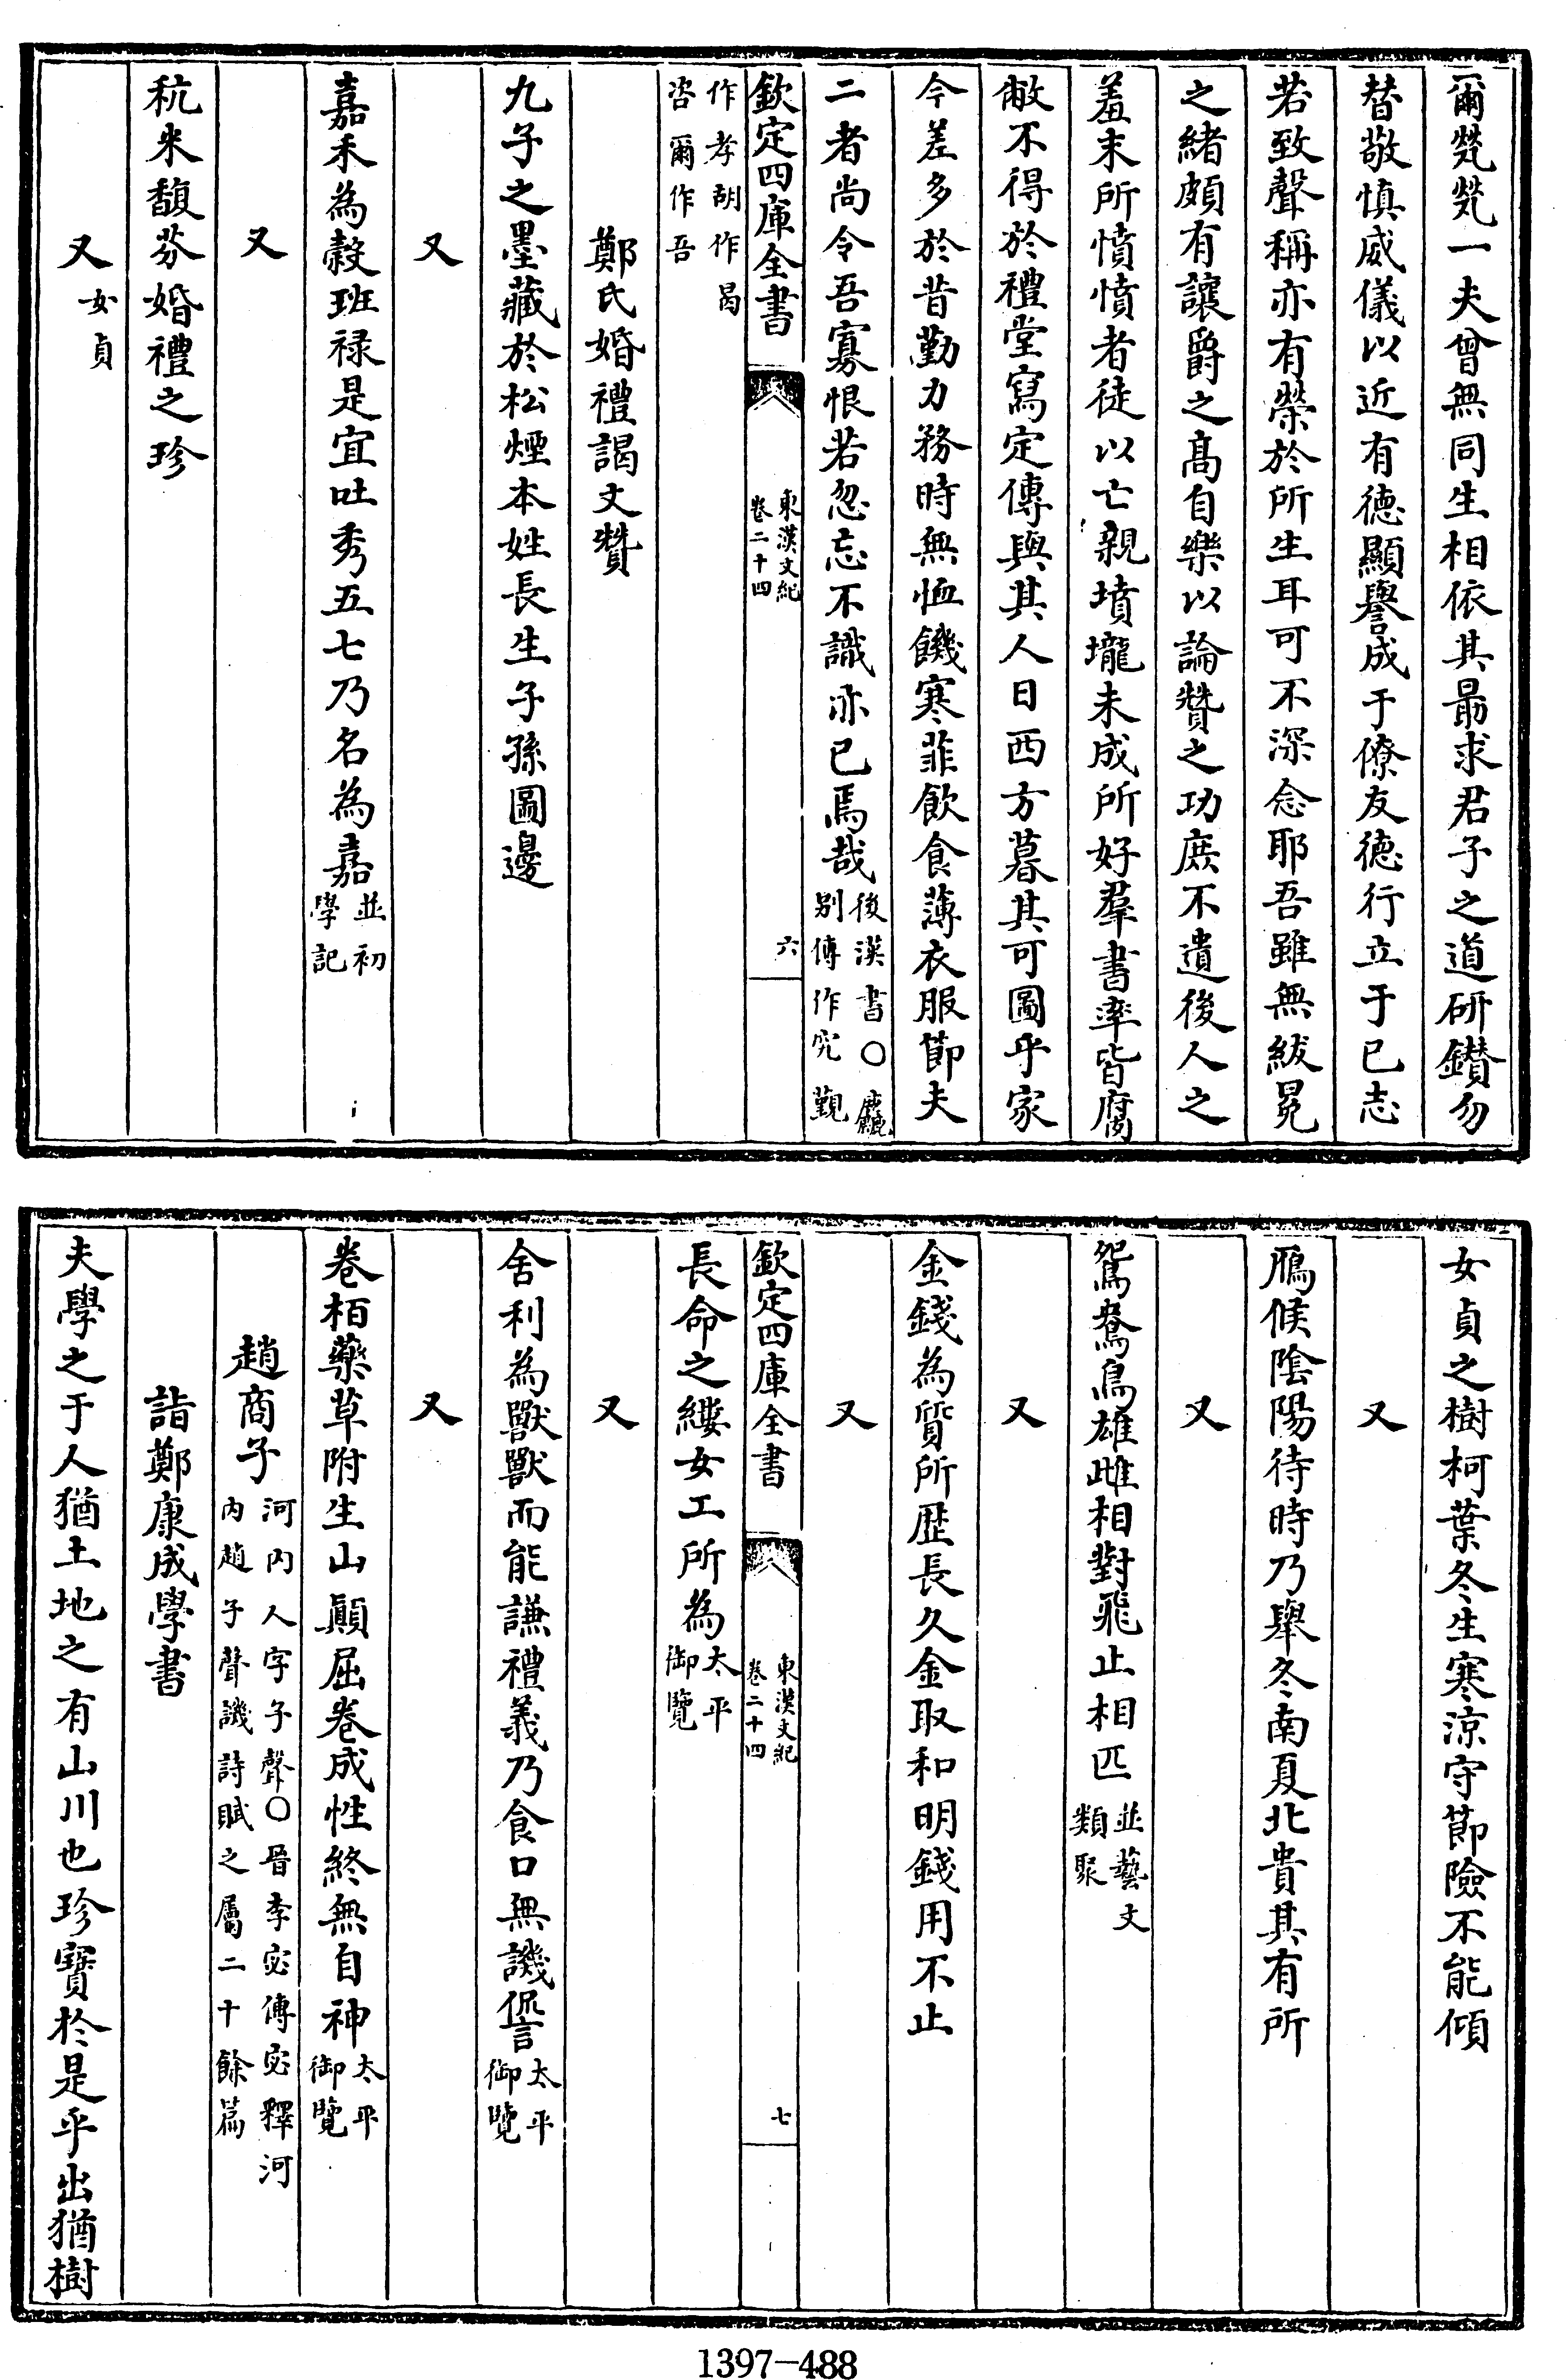 爾煢煢一夫曾無同生相依其朂求君子之道研鑚勿
替敬慎威儀以近有徳顯譽成于僚友徳行立于已志
若致聲稱亦有榮於所生耳可不深念耶吾雖無紱冕
之緒頗有讓爵之髙自樂以論贊之功庶不遺後人之
羞末所憤憤者徒以亡親墳壠未成所好羣書率皆腐
敝不得於禮堂寫定傳與其人日西方暮其可圖乎家
今差多於昔勤力務時無恤饑寒菲飲食薄衣服節夫
二者尚令吾寡恨若忽忘不識亦已焉哉後漢書○
別傳作究覲
欽定四庫全書
東漢文紀
卷二十四
六
作孝胡作曷
咨爾作吾
鄭氏婚禮謁文贊
九子之墨藏於松煙本姓長生子孫圖邊
又
嘉禾為穀班禄是宜吐秀五七乃名為嘉並初
學記
又
秔米馥芬婚禮之珍
又女貞
女貞之樹柯葉冬生寒涼守節險不能傾
又
鴈候陰陽待時乃舉冬南夏北貴其有所
又
鴛鴦鳥雄雌相對飛止相匹並藝文
類聚
又
金錢為質所歴長久金取和明錢用不止
又
欽定四庫全書
東漢文紀
卷二十四
七
長命之縷女工所為太平
御覽
又
舍利為獸獸而能謙禮義乃食口無譏諐太平
御覽
又
卷栢藥草附生山顛屈卷成性終無自神太平
御覽
趙商子河内人字子聲○晉李宓傳宓釋河
内趙子聲譏詩賦之屬二十餘篇
詣鄭康成學書
夫學之于人猶土地之有山川也珍寳於是乎出猶樹
1397-488